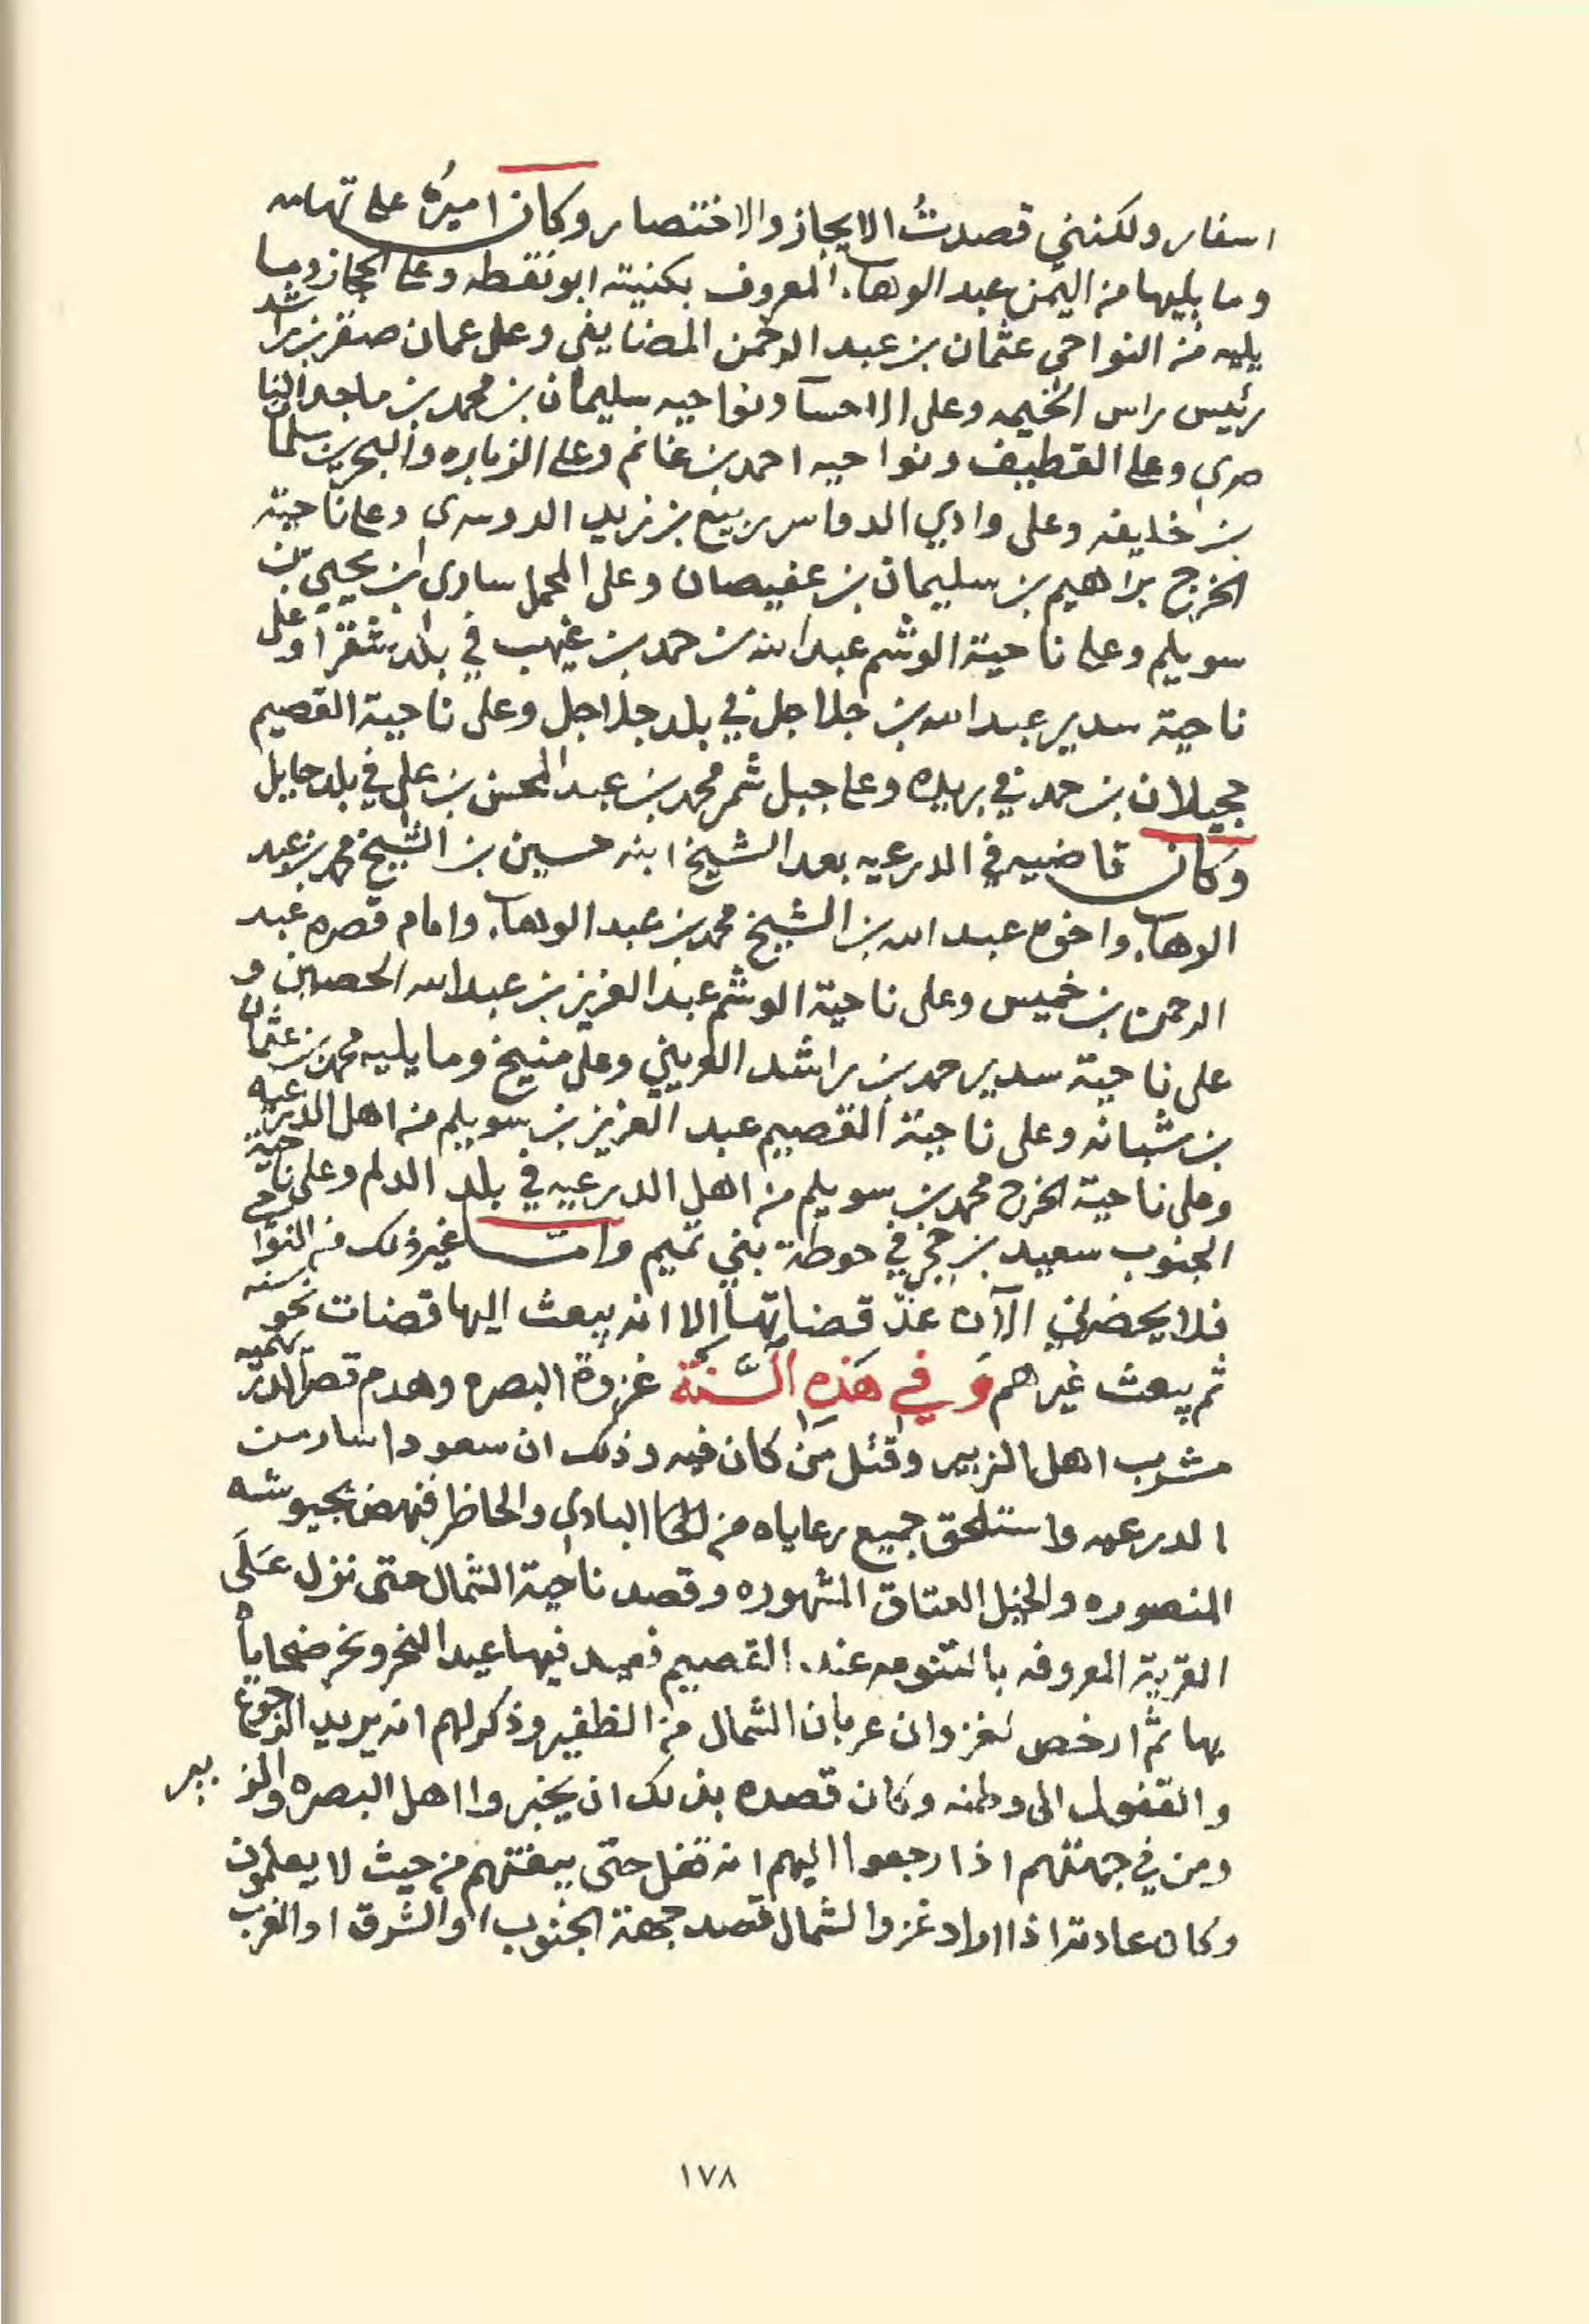 اسفار ولكنني قصدتُ الايجاز والاختصار وكان اميرُه على تهامه
وما يليها من اليمن عبد الوهاب المعروف بكنيته ابو نقطه وعلى الحجاز وما
يليه من النواحي عثمان بن عبد الرحمن المضايفي وعلى عمان صقر بن راشد
رئيس راس الخيمه وعلى الاحسآ ونواحيه سليمان بن محمد بن ماجد النا
صري وعلى القطيف ونواحيه احمد بن غانم وعلى الزباره والبحرين سلمان
بن خليفه وعلى وادي الدواسر ربيع بن زيد الدوسري وعلى ناحية
الخرج براهيم بن سليمان بن عفيصان وعلى المحمل ساري ابن يحيى بن
سويلم وعلى ناحية الوشم عبد الله بن حمد بن غيهب في بلد شقرا وعلى
ناحية سدير عبد الله بن جلاجل في بلد جلاجل وعلى ناحية القصيم
حجيلان بن حمد في بريده وعلى جبل شمر محمد بن عبد المحسن بن علي في بلد حايل
وكان قاضيه في الدرعيه بعد الشيخ ابنه حسين بن الشيخ محمد بن عبد
الوهاب واخوه عبد الله بن الشيخ محمد بن عبد الوهاب وامام قصره عبد
الرحمن بن خميس وعلى ناحية الوشم عبد العزيز بن عبد الله الحصين و
على ناحية سدير حمد بن راشد العريني وعلى منيخ وما يليه محمد بن عثمان
بن شبانه وعلى ناحية القصيم عبد العزيز بن سويلم من اهل الدرعيه
وعلى ناحية الخرج محمد بن سويلم من اهل الدرعيه في بلد الدلم وعلى ناحية
الجنوب سعيد بن حجي في حوطة بني تميم وامّا غير ذلك من النواحي
فلا يحضرني الآن عدّ قضاتها الا انه يبعث اليها قضات نحو سنه
ثم يبعث غيرهم وَفي هَذِه السَّنَة غزوة البصره وهدم قصر الدريهميه
مشرب اهل الزبير وقتل مَنْ كان فيه وذلك ان سعود اسار من
الدرعيه واستلحق جميع رعاياه من البادي والحاظر فنهض بجيوشه
المنصوره والخيل العتاق المشهوره وقصد ناحية الشمال حتى نزل عَلَى
القرية المعروفه بالتنومه عند القصيم فعيد فيها عيد النحر ونحر ضحاياه
بها ثم ارخص لغزوان عربان الشمال من الظفير وذكر لهم انه يريد الرجوع
والقفول الى وطنه وكان قصده بذلك ان يخبروا اهل البصره والزبير
ومن في جهتهم اذا رجعوا اليهم انه قفل حتى يبغتهم من حيث لا يعلمون
وكان عادته اذا اراد غزو الشمال قصد جهة الجنوب او الشرق او الغرب
١٧٨